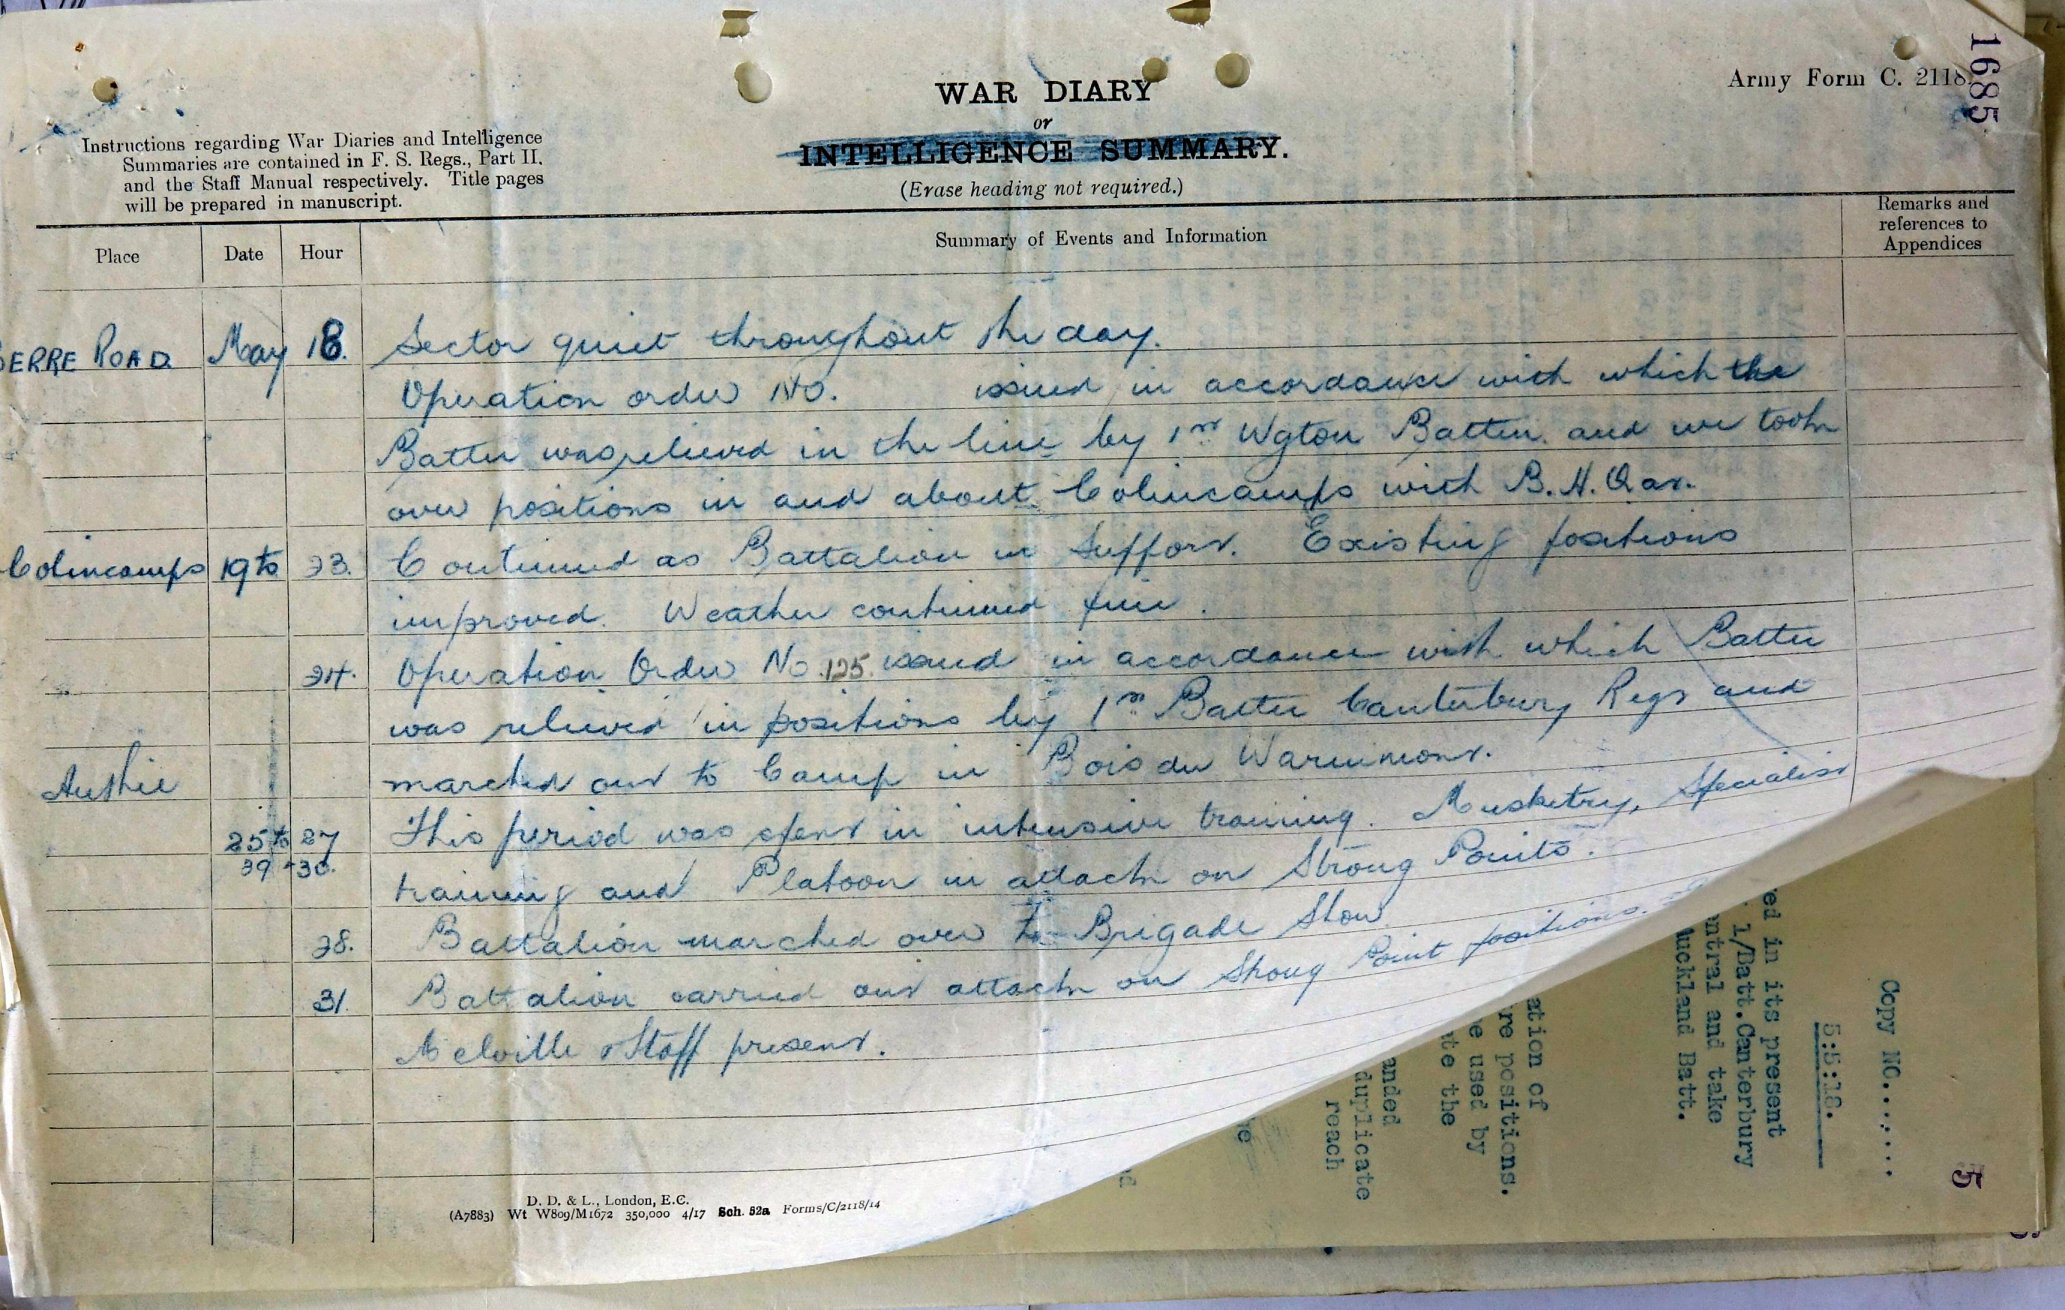 1685
Army Form C. 2118.
WAR DIARY
or
INTELLIGENCE SUMMARY.
(Erase heading not required.)
Instructions regarding War Diaries and Intelligence
Summaries are contained in F. S. Regs., Part II.
and the Staff Manual respectively. Title pages
will be prepared in manuscript.
Place Date Hour Summary of Events and Information Remarks and
references to
Appendices
SERRE ROAD May 18. Sector quiet throughout the day.
Operation order No. issued in accordance with which the
Battn was relieved in the line by 1st Wgton Battn. and we took
over positions in and about Colincamps with B.H.Qrs.
Colincamps 19 to 23. Continued as Battalion in Support. Existing positions
improved. Weather continued fine.
24. Operation Order No. 125. issued in accordance with which Battn
was relieved in positions by 1st Battn Canterbury Regt and
marched out to Camp in Bois du Warnimont.
Authie
25 to 27 This period was spent in intensive training. Musketry, Specialist
29 - 30. training and Platoon in attack on Strong Points.
28. Battalion marched over to Brigade Show
31. Battalion carried out attack on Strong Point positions.
Melville & Staff present.
D. D. & L., London, E.C.
(A7883) Wt W809/M1672 350,000 4/17 Sch. 52a Forms/C/2118/14
Copy NO.......
5:5:18.
ed in its present
1/Batt.Canterbury
entral and take
uckland Batt.
ation of
re positions.
e used by
te the
anded
duplicate
reach
5